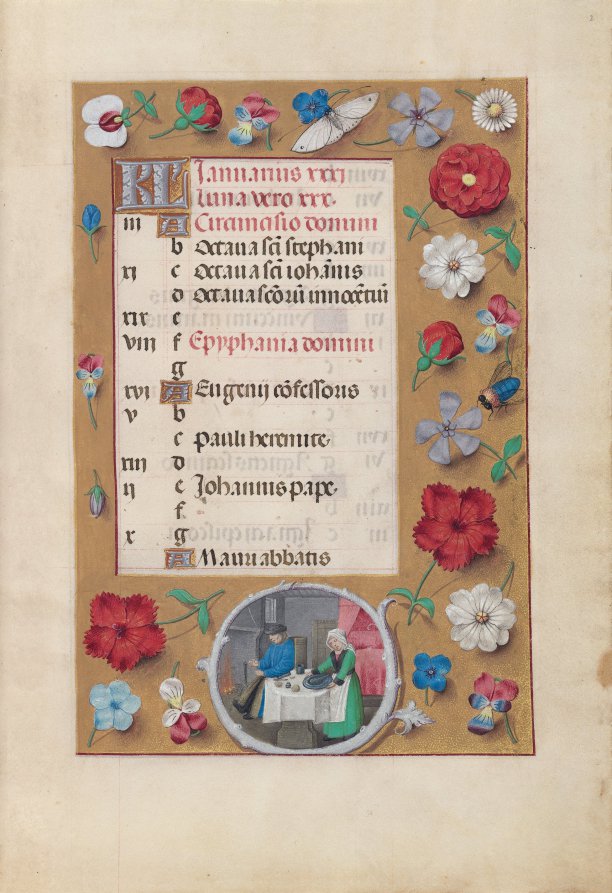 KL Januarius xxxj
Luna vero xxx.
iij A Circumcisio domini
b Octaua scī stephani
xj c Octaua scī iohānis
d Octaua scōrū innocētiū
xix e
viij f Epyphania domini
g
xvj A Eugenij cōfessoris
v b
c Pauli heremite.
xiij d
ij e Johannis pape.
f
x g
A Mauri abbatis